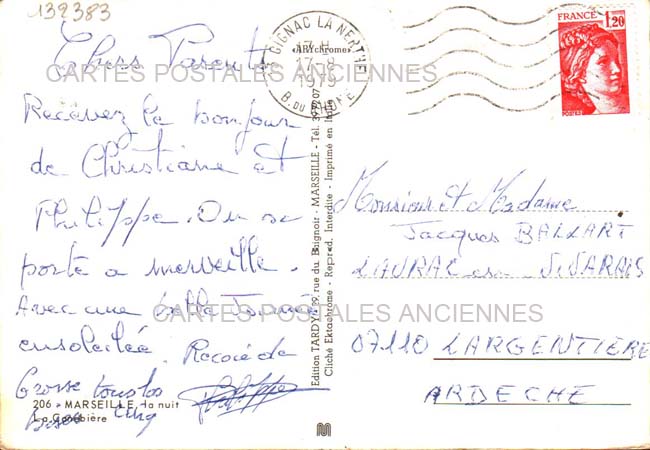 132383
Chers Parents
Recevez le bonjour
de Christiane et
Philippe. On se
porte a merveille.
Avec une belle Journée
ensoleilée. Recoie de
Grosse tous los
cinq
Philippe
206 - MARSEILLE, la nuit
La Canebière
CARTES POSTALES ANCIENNES
CARTES POSTALES ANCIENNES
«ARYchrome»
Edition TARDY - 39, rue du Baignoir - MARSEILLE - Tél.
Cliché Ektachrome - Reprod. Interdite - Imprimé en
GIGNAC LA NERTHE
17 H
17-8
1979
B. DU RHONE
FRANCE
1,20
Monsieur et Madame
Jacques BALLART
LAURAC en VIVARAIS
07110 LARGENTIERE
ARDECHE